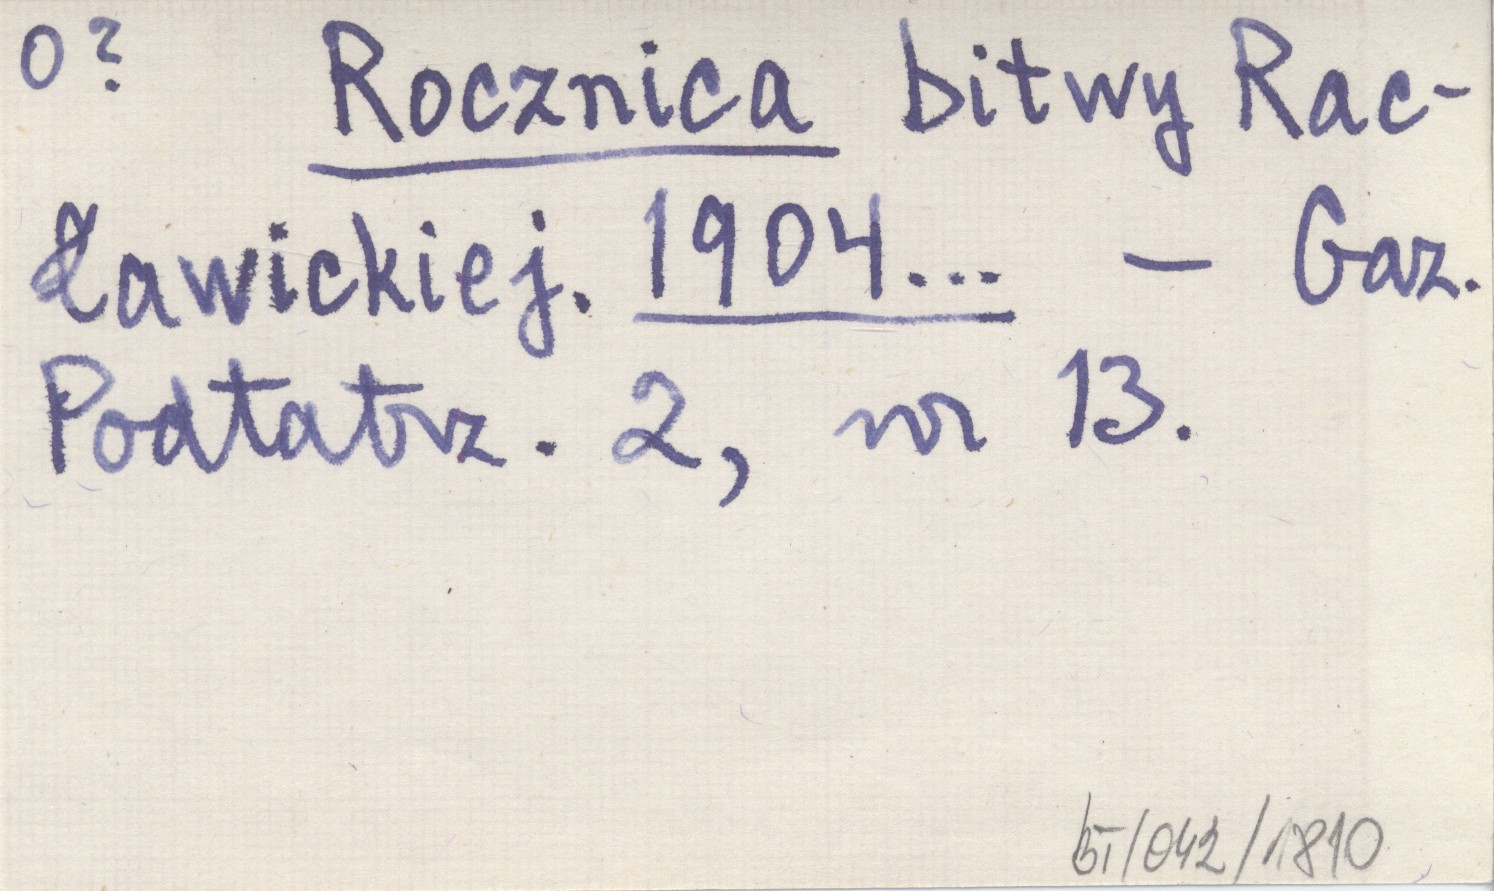 0? Rocznica bitwy Rac-
ławickiej. 1904... – Gaz.
Podtatrz. 2, nr 13.
bI/042/1810